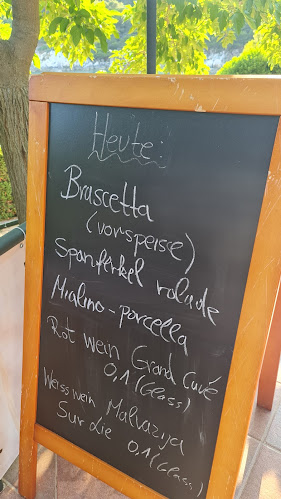 Heute:
Brascetta
(vorspeise)
Spanferkel rolade
Mialino-porcella
Rot wein Grand Cuvé
0,1 (Glass)
Weiss wein Malvazija
Sur Lie 0,1 (Glass)